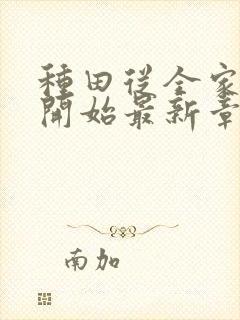 種田從全家
開始最新章
南加